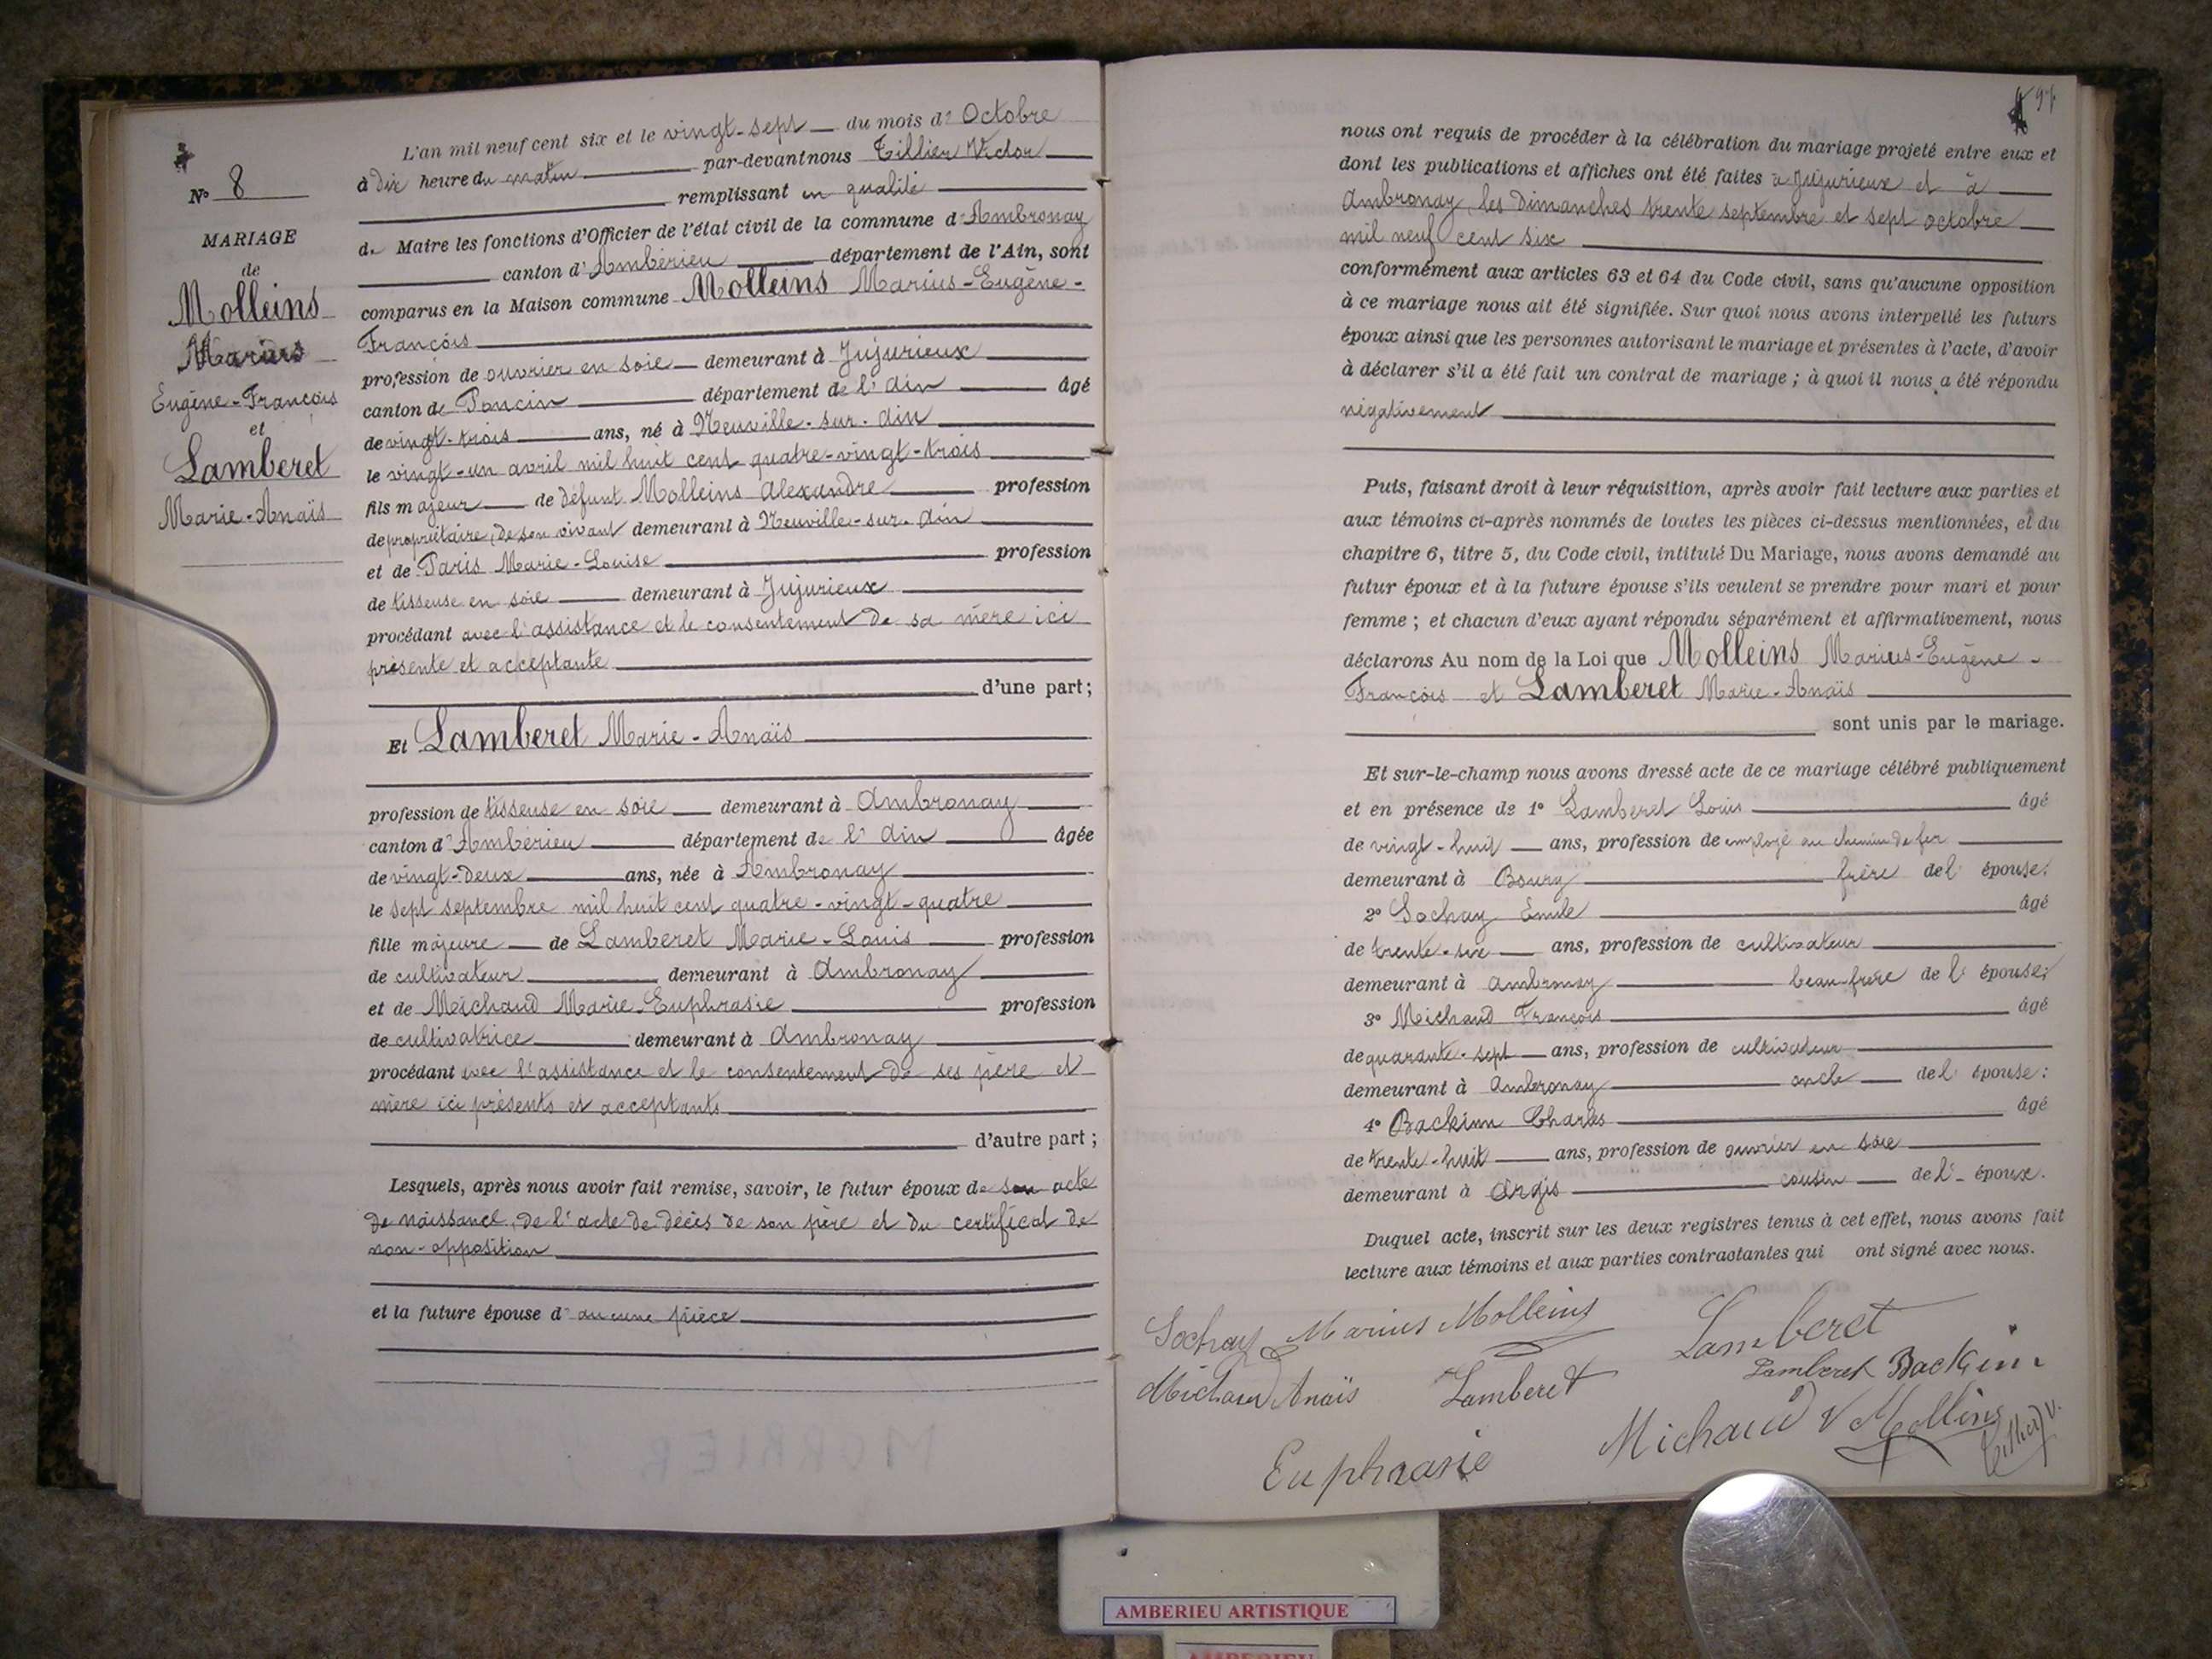 N° 8
MARIAGE
de
Molleins
Marius
Eugène-François
et
Lamberet
Marie-Anaïs
L'an mil neuf cent six et le vingt-sept du mois d' Octobre
à dix heure du matin par-devant nous Tillier Victor
remplissant en qualité
de Maire les fonctions d'Officier de l'état civil de la commune d'Ambronay
canton d'Ambérieu département de l'Ain, sont
comparus en la Maison commune Molleins Marius-Eugène-
François
profession de ouvrier en soie demeurant à Jujurieux
canton de Poncin département de l'Ain âgé
de vingt-trois ans, né à Neuville-sur-Ain
le vingt-un avril mil huit cent quatre-vingt-trois
fils majeur de défunt Molleins Alexandre profession
de propriétaire, de son vivant demeurant à Neuville-sur-Ain
et de Paris Marie-Louise profession
de tisseuse en soie demeurant à Jujurieux
procédant avec l'assistance et le consentement de sa mère ici
présente et acceptante
d'une part;
Et Lamberet Marie-Anaïs
profession de tisseuse en soie demeurant à Ambronay
canton d'Ambérieu département de l'Ain âgée
de vingt-deux ans, née à Ambronay
le sept septembre mil huit cent quatre-vingt-quatre
fille majeure de Lamberet Marie-Louis profession
de cultivateur demeurant à Ambronay
et de Michaud Marie-Euphrasie profession
de cultivatrice demeurant à Ambronay
procédant avec l'assistance et le consentement de ses père et
mère ici présents et acceptants
d'autre part;
Lesquels, après nous avoir fait remise, savoir, le futur époux de son acte
de naissance, de l'acte de décès de son père et du certificat de
non-opposition
et la future épouse d'aucune pièce
97
nous ont requis de procéder à la célébration du mariage projeté entre eux et
dont les publications et affiches ont été faites à Jujurieux et à
Ambronay, les Dimanches trente septembre et sept octobre
mil neuf cent six
conformément aux articles 63 et 64 du Code civil, sans qu'aucune opposition
à ce mariage nous ait été signifiée. Sur quoi nous avons interpellé les futurs
époux ainsi que les personnes autorisant le mariage et présentes à l'acte, d'avoir
à déclarer s'il a été fait un contrat de mariage; à quoi il nous a été répondu
négativement
Puis, faisant droit à leur réquisition, après avoir fait lecture aux parties et
aux témoins ci-après nommés de toutes les pièces ci-dessus mentionnées, et du
chapitre 6, titre 5, du Code civil, intitulé Du Mariage, nous avons demandé au
futur époux et à la future épouse s'ils veulent se prendre pour mari et pour
femme; et chacun d'eux ayant répondu séparément et affirmativement, nous
déclarons Au nom de la Loi que Molleins Marius-Eugène-
François et Lamberet Marie-Anaïs
sont unis par le mariage.
Et sur-le-champ nous avons dressé acte de ce mariage célébré publiquement
et en présence de 1° Lamberet Louis âgé
de vingt-huit ans, profession de employé au chemin de fer
demeurant à Bourg frère de l'épouse;
2° Sochay Emile âgé
de trente-six ans, profession de cultivateur
demeurant à Ambronay beau-frère de l'épouse;
3° Michaud François âgé
de quarante-sept ans, profession de cultivateur
demeurant à Ambronay oncle de l'épouse;
4° Backinn Charles âgé
de trente-huit ans, profession de ouvrier en soie
demeurant à Argis cousin de l'époux.
Duquel acte, inscrit sur les deux registres tenus à cet effet, nous avons fait
lecture aux témoins et aux parties contractantes qui ont signé avec nous.
Sochay Marius Molleins Lamberet
Michaud Anaïs Lamberet Lamberet Backinn
Euphrasie Michaud V Mollins Tillier V.
AMBERIEU ARTISTIQUE
AMBERIEU